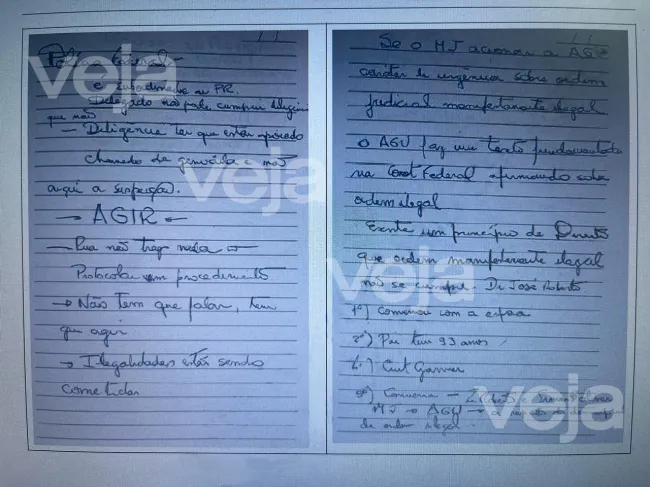 Polícia Federal
e subordinada ao PR.
Delegado não pode cumprir
que não
— Diligencia ter que estar apoiado
Chamado de genocida e não
aqui a suspeição.
→ AGIR ←
— Rua não traz nada
Protocolar um procedimento
→ Não tem que falar, tem
que agir
→ Ilegalidades estão sendo
cometidas
Se o MJ acionou a AGU
caráter de urgência sobre ordem
judicial manifestante ilegal
O AGU faz um texto fundamentado
na Const Federal afirmando sobre
ordem ilegal
Existe um princípio de Direito
que ordem manifestante ilegal
não se cumpre. Dr José Roberto
1º) Conversa com a esposa
2º) Pai tem 93 anos
Curt
Conversa
MJ → AGU →
de ordem ilegal
veja
veja
veja
veja